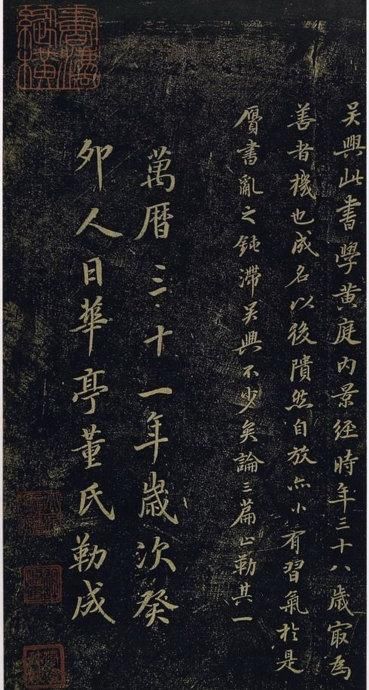 吴興此書學黄庭内景經時年三十八歲㝡為
善者機也成名以後隤然自放亦小有習氣於是
贋書亂之鈍滯吴興不少矣論三篇止勒其一
萬曆三十一年歲次癸
卯人日華亭董氏勒成